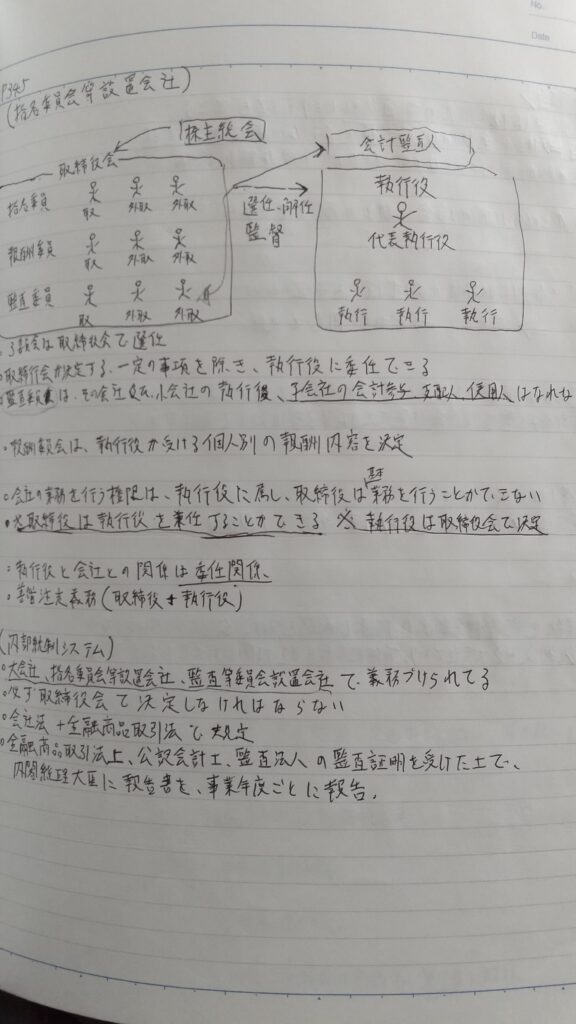 No.
Date
P345
(指名委員会等設置会社)
株主総会
会計監査人
取締役会
執行役
指名委員
取 外取 外取
選任・解任
監督
代表執行役
報酬委員
取 外取 外取
監査委員
取 外取 外取
執行 執行 執行
委員会は取締役会で選任
取締役会が決定する、一定の事項を除き、執行役に委任できる
監査委員は、その会社又は、小会社の執行役、子会社の会計参与 支配人、使用人はなれな
報酬委員会は、執行役が受ける個人別の報酬内容を決定
会社の業務を行う権限は、執行役に属し、取締役は業務を行うことができない
取締役は執行役を兼任することができる ※執行役は取締役会で決定
執行役と会社との関係は委任関係、
善管注意義務(取締役+執行役)
(内部統制システム)
大会社、指名委員会等設置会社、監査等委員会設置会社で、義務づけられてる
必ず取締役会で決定しなければならない
会社法+金融商品取引法で規定
金融商品取引法上、公認会計士、監査法人の監査証明を受けた上で、
内閣総理大臣に報告書を、事業年度ごとに報告。